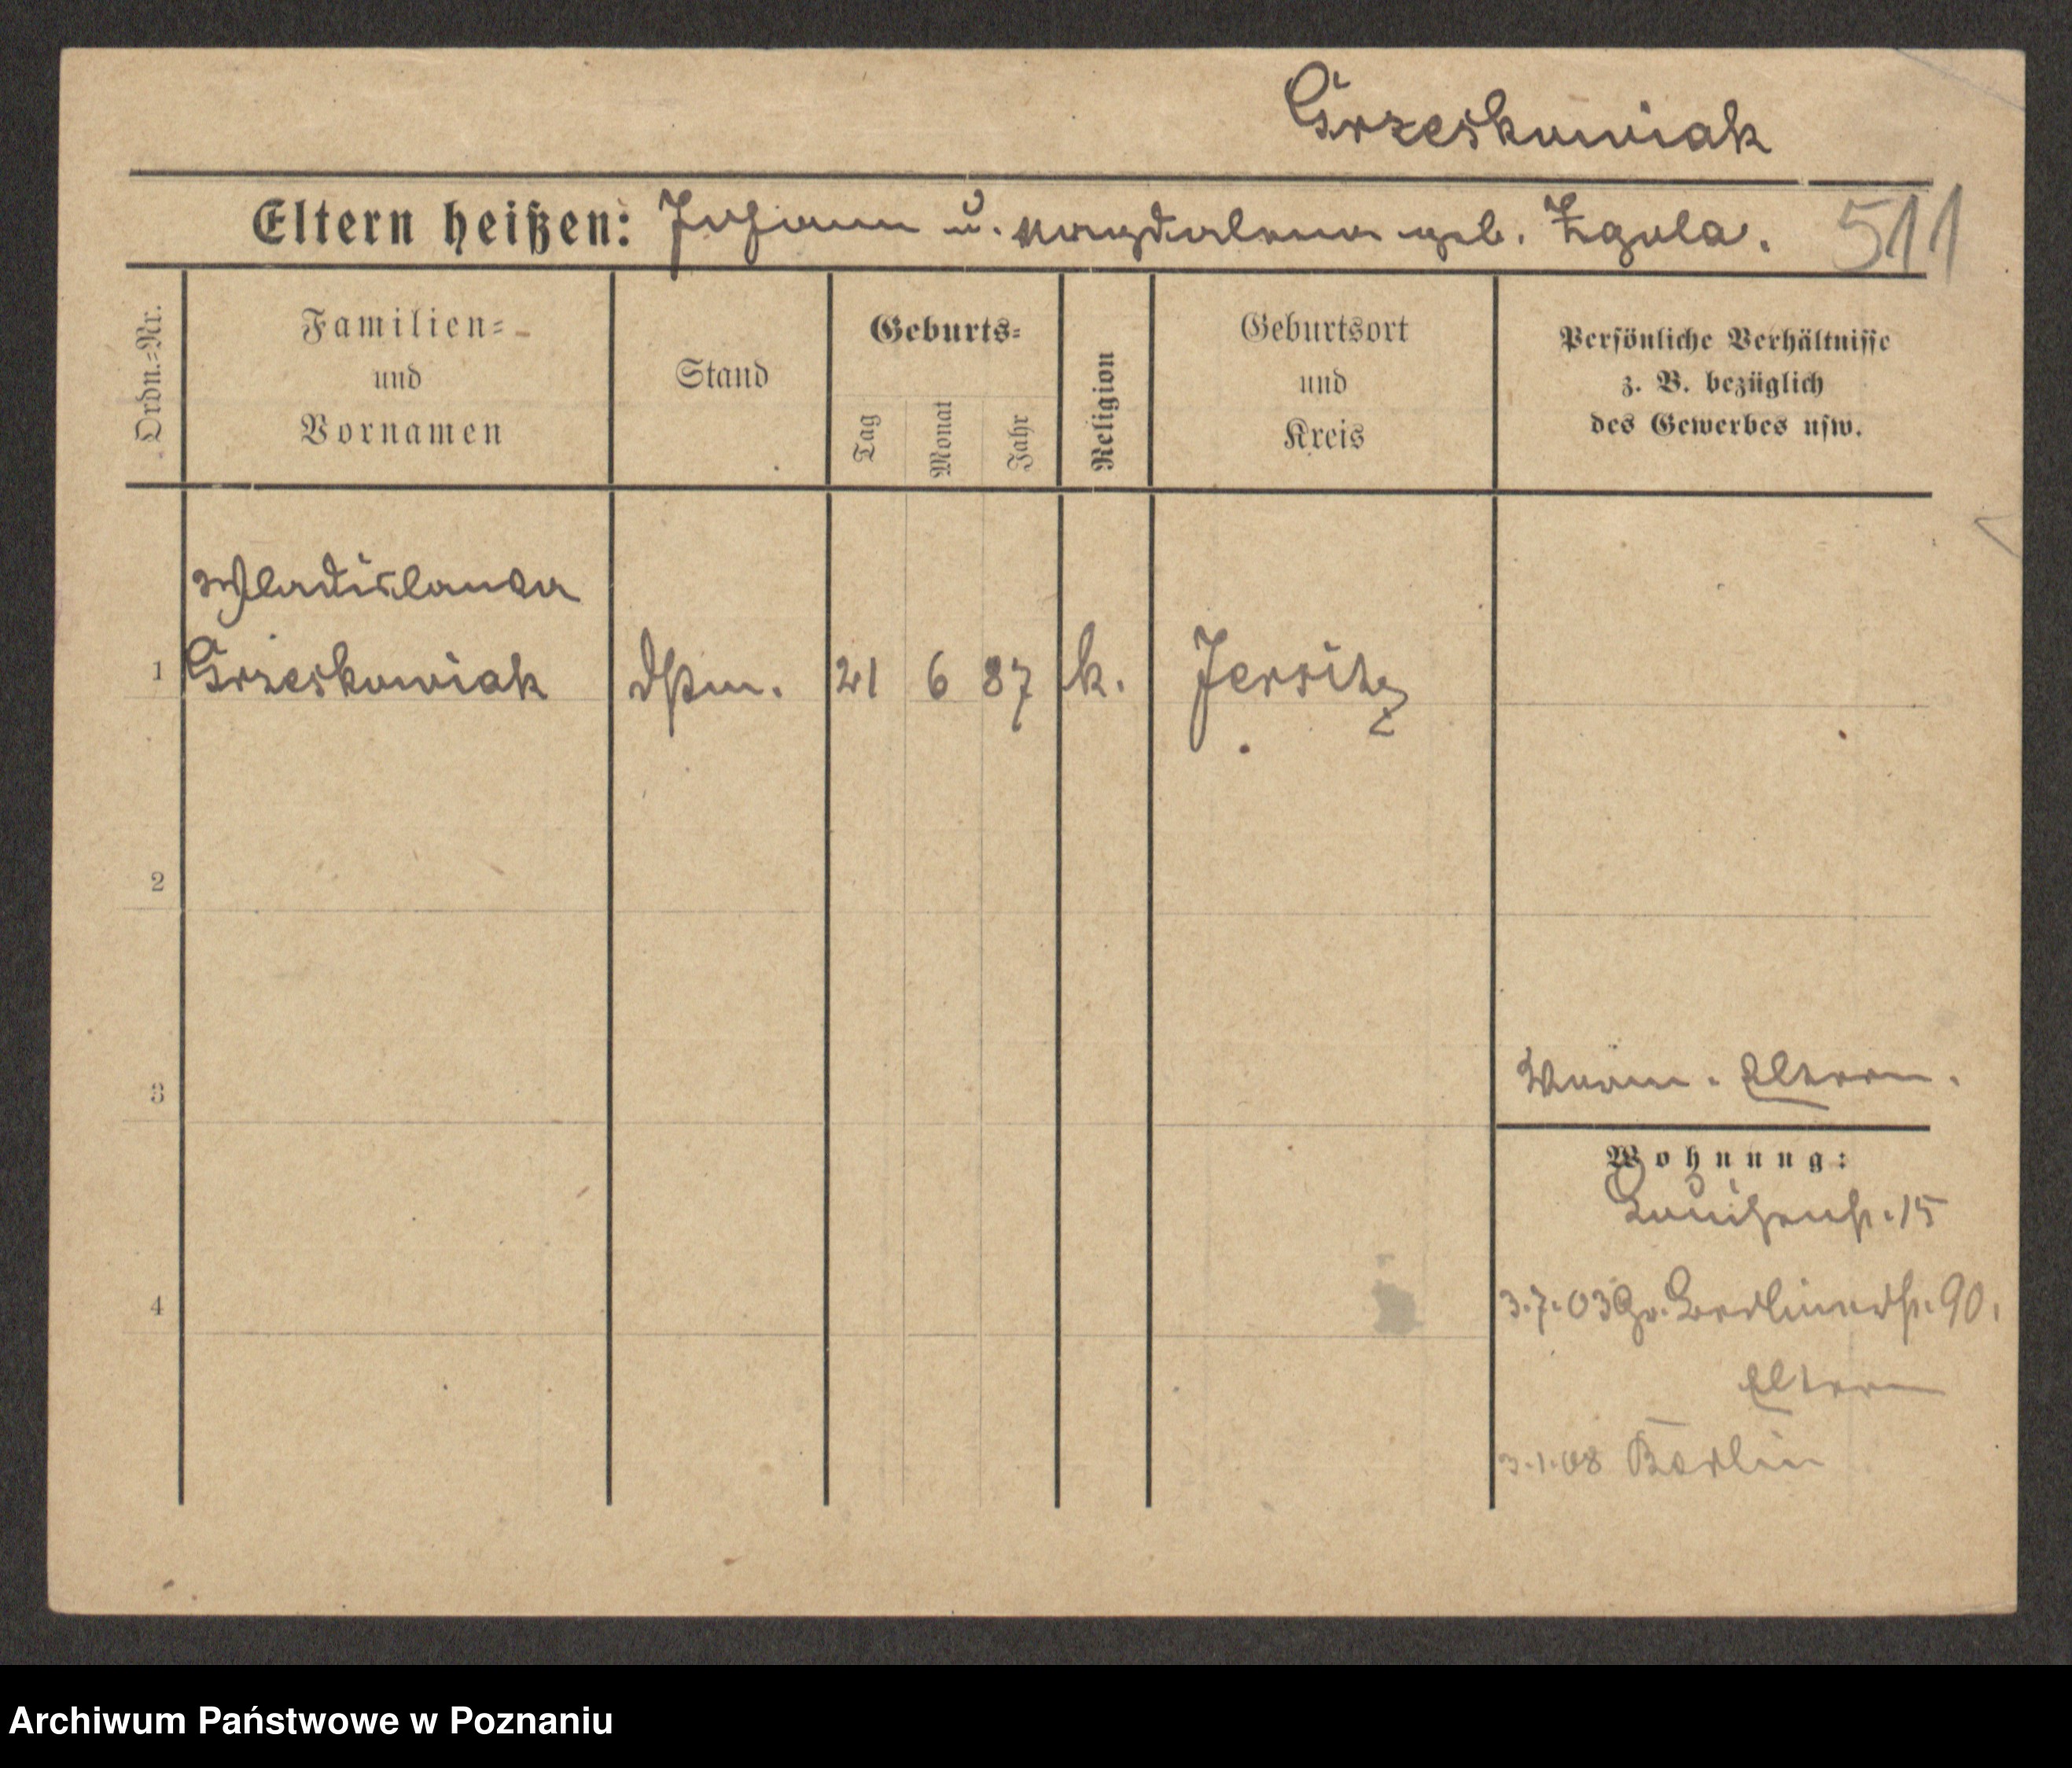 Grzeskowiak
Eltern heißen: Johann u. Magdalena geb. Zgola.
511
Ordn.-Nr.
Familien-
und
Vornamen
Stand
Geburts-
Tag
Monat
Jahr
Religion
Geburtsort
und
Kreis
Persönliche Verhältnisse
z. B. bezüglich
des Gewerbes usw.
Wladislawa
1 Grzeskowiak 21 6 87 k. Jersitz
2
3
Eltern.
Wohnung:
Louisenstr. 15
4
3.7.03 Gr. Berlinerstr. 90.
Eltern
3.1.08 Berlin
Archiwum Państwowe w Poznaniu